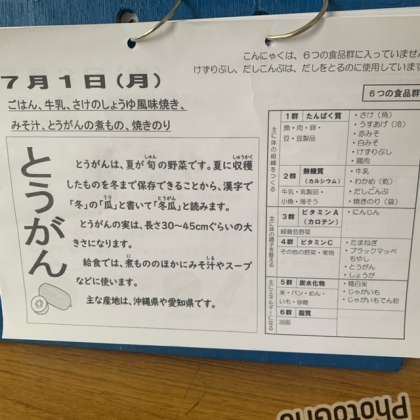 こんにゃくは、6つの食品群に入っていません
けずりぶし、だしこんぶは、だしをとるのに使用しています
7月1日(月)
ごはん、牛乳、さけのしょうゆ風味焼き、
みそ汁、とうがんの煮もの、焼きのり
とうがん
とうがんは、夏が旬の野菜です。夏に収穫
したものを冬まで保存できることから、漢字で
「冬」の「瓜」と書いて「冬瓜」と読みます。
とうがんの実は、長さ30~45cmぐらいの大
きさになります。
給食では、煮もののほかにみそ汁やスープ
などに使います。
主な産地は、沖縄県や愛知県です。
6つの食品群
主に体の組織をつくる
1群 たんぱく質
魚・肉・卵・
豆・豆製品
・さけ(魚)
・うすあげ(冷)
・赤みそ
・白みそ
・けずりぶし
・鶏肉
2群 無機質
(カルシウム)
牛乳・乳製品・
小魚・海そう
・牛乳
・わかめ(乾)
・だしこんぶ
・焼きのり(袋)
主に体の調子を整える
3群 ビタミンA
(カロテン)
緑黄色野菜
・にんじん
4群 ビタミンC
その他の野菜・果物
・たまねぎ
・ブラックマッペ
もやし
・とうがん
・しょうが
主にエネルギーになる
5群 炭水化物
米・パン・めん・
いも・砂糖
・精白米
・じゃがいも
・じゃがいもでん粉
6群 脂質
油脂
PhotoGrid